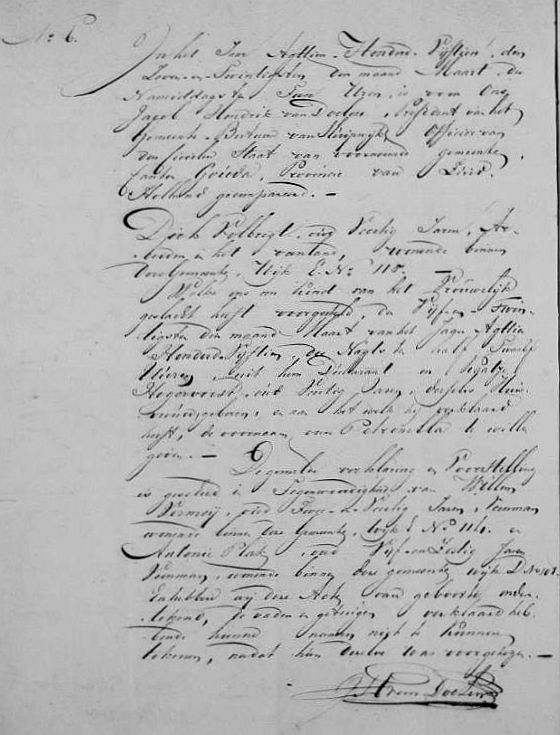 No. 6.
In het Jaar Agttien-Honderd-Vijftien, den
Zeven-en-Twintigsten der maand Maart, des
Namiddags te Uren, is voor Ons
Jacob Hendrik van Doelen, President van het
Gemeente-Bestuur van , Officier van
den Civielen Staat van voornoemde gemeente,
Gouda, Provincie van Zuid-
Holland gecompareerd.—
Dirk Volbregt, oud Veertig Jaren, Ar-
beider in het , wonende binnen
deze Gemeente, Wijk E. No. 118.—
Welke ons een Kind van het Vrouwelijk
geslacht heeft voorgesteld, den Vijf-en-Twin-
tigsten der maand Maart van het Jaar Agttien
Honderd-Vijftien, des Nagts te half Twaalf
Uuren, uit hem Declarant en
Hogervorst, oud Veertig Jaren, deszelfs Huis-
vrouw, geboren, en aan het welk hij verklaard
heeft, de voornaam van Petronella te willen
geven.—
Degemelde verklaring en Voorstelling
is geschied in Tegenwoordigheid van Willem
Vermeij, oud Twee-en-Veertig Jaren, Veenman
wonende binnen deze Gemeente, Wijk E No. 114. en
Antonie Plat, oud Vijf-en-Zestig Jaren
Veenman, wonende binnen deze gemeente, wijk D No.
En hebben wij deze Acte van geboorte onder-
tekend, de vader en getuigen verklaard heb-
bende hunne namen niet te kunnen
tekenen, nadat hun dezelve was voorgelezen.—
JH van Doelen